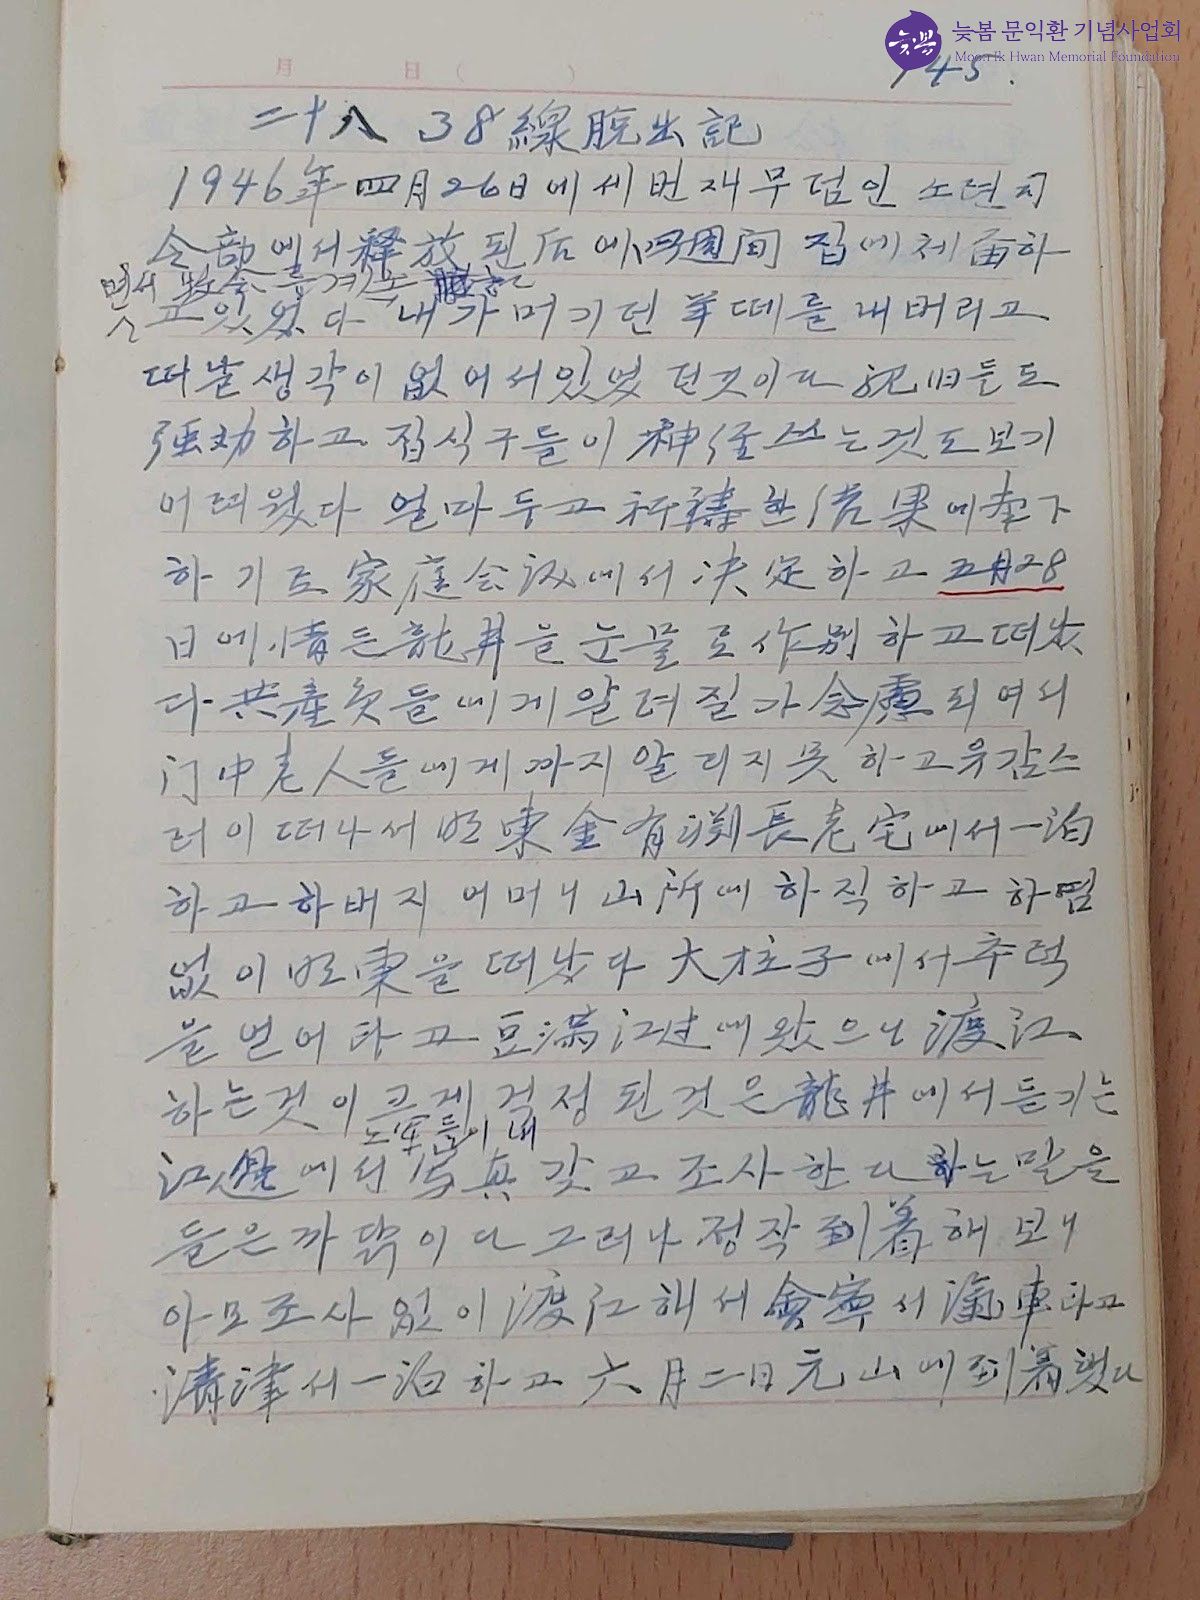 늦봄
늦봄 문익환 기념사업회
Moon Ik Hwan Memorial Foundation
月 日 ( )
145.
二十八 38線脫出記
1946年 四月26日에 세번재 무덤인 노련지
令部에서 釋放된 后에 四週間 집에 체面하
면서 牧会를 계속
고 있었다 내가 머기던 羊떼를 내버리고
떠날 생각이 없어서 있었던것이다 親旧들도
强力하고 집식구들이 神経쓰는것도 보기
어려웠다 얼마 두고 祈禱한 結果에 南下
하기로 家庭会议에서 决定하고 五月28
日에 情든 龍井을 눈물로 作別하고 떠났
다 共産党들에게 알려질가 念慮되여서
门中老人들에게까지 알리지 못하고 유감스
러이 떠나서 明東 金有 長老宅에서 一泊
하고 하버지 어머니 山所에 하직하고 하염
없이 明東을 떠났다 大柱子에서 추럭
을 얻어 타고 豆滿江边에 왔으니 渡江
하는것이 크게 걱정된것은 龍井에서 듣기는
노军들이 내
江邊에서 写真 갖고 조사한다 하는 말을
들은 까닭이다 그러나 정작 到着해 보니
아모 조사 없이 渡江해서 會寧서 汽車 타고
淸津서 一泊하고 六月二日 元山에 到着했다